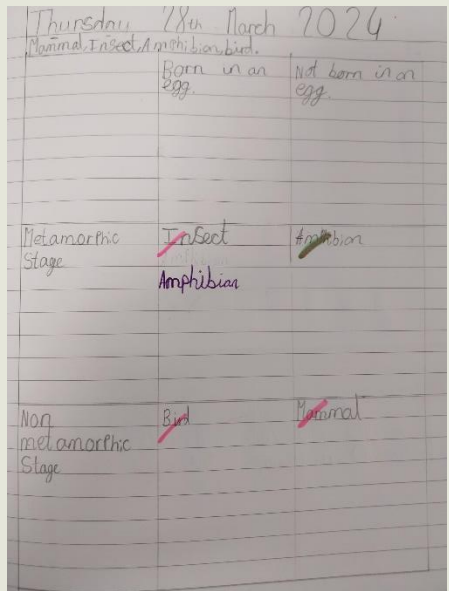 Thursday 28th March 2024
Mammal, Insect, Amphibian, bird.
Born in an egg.
Not born in an egg.
Metamorphic
Stage
Insect
Amphibian
Amphibian
Non
metamorphic
Stage
Bird
Mammal